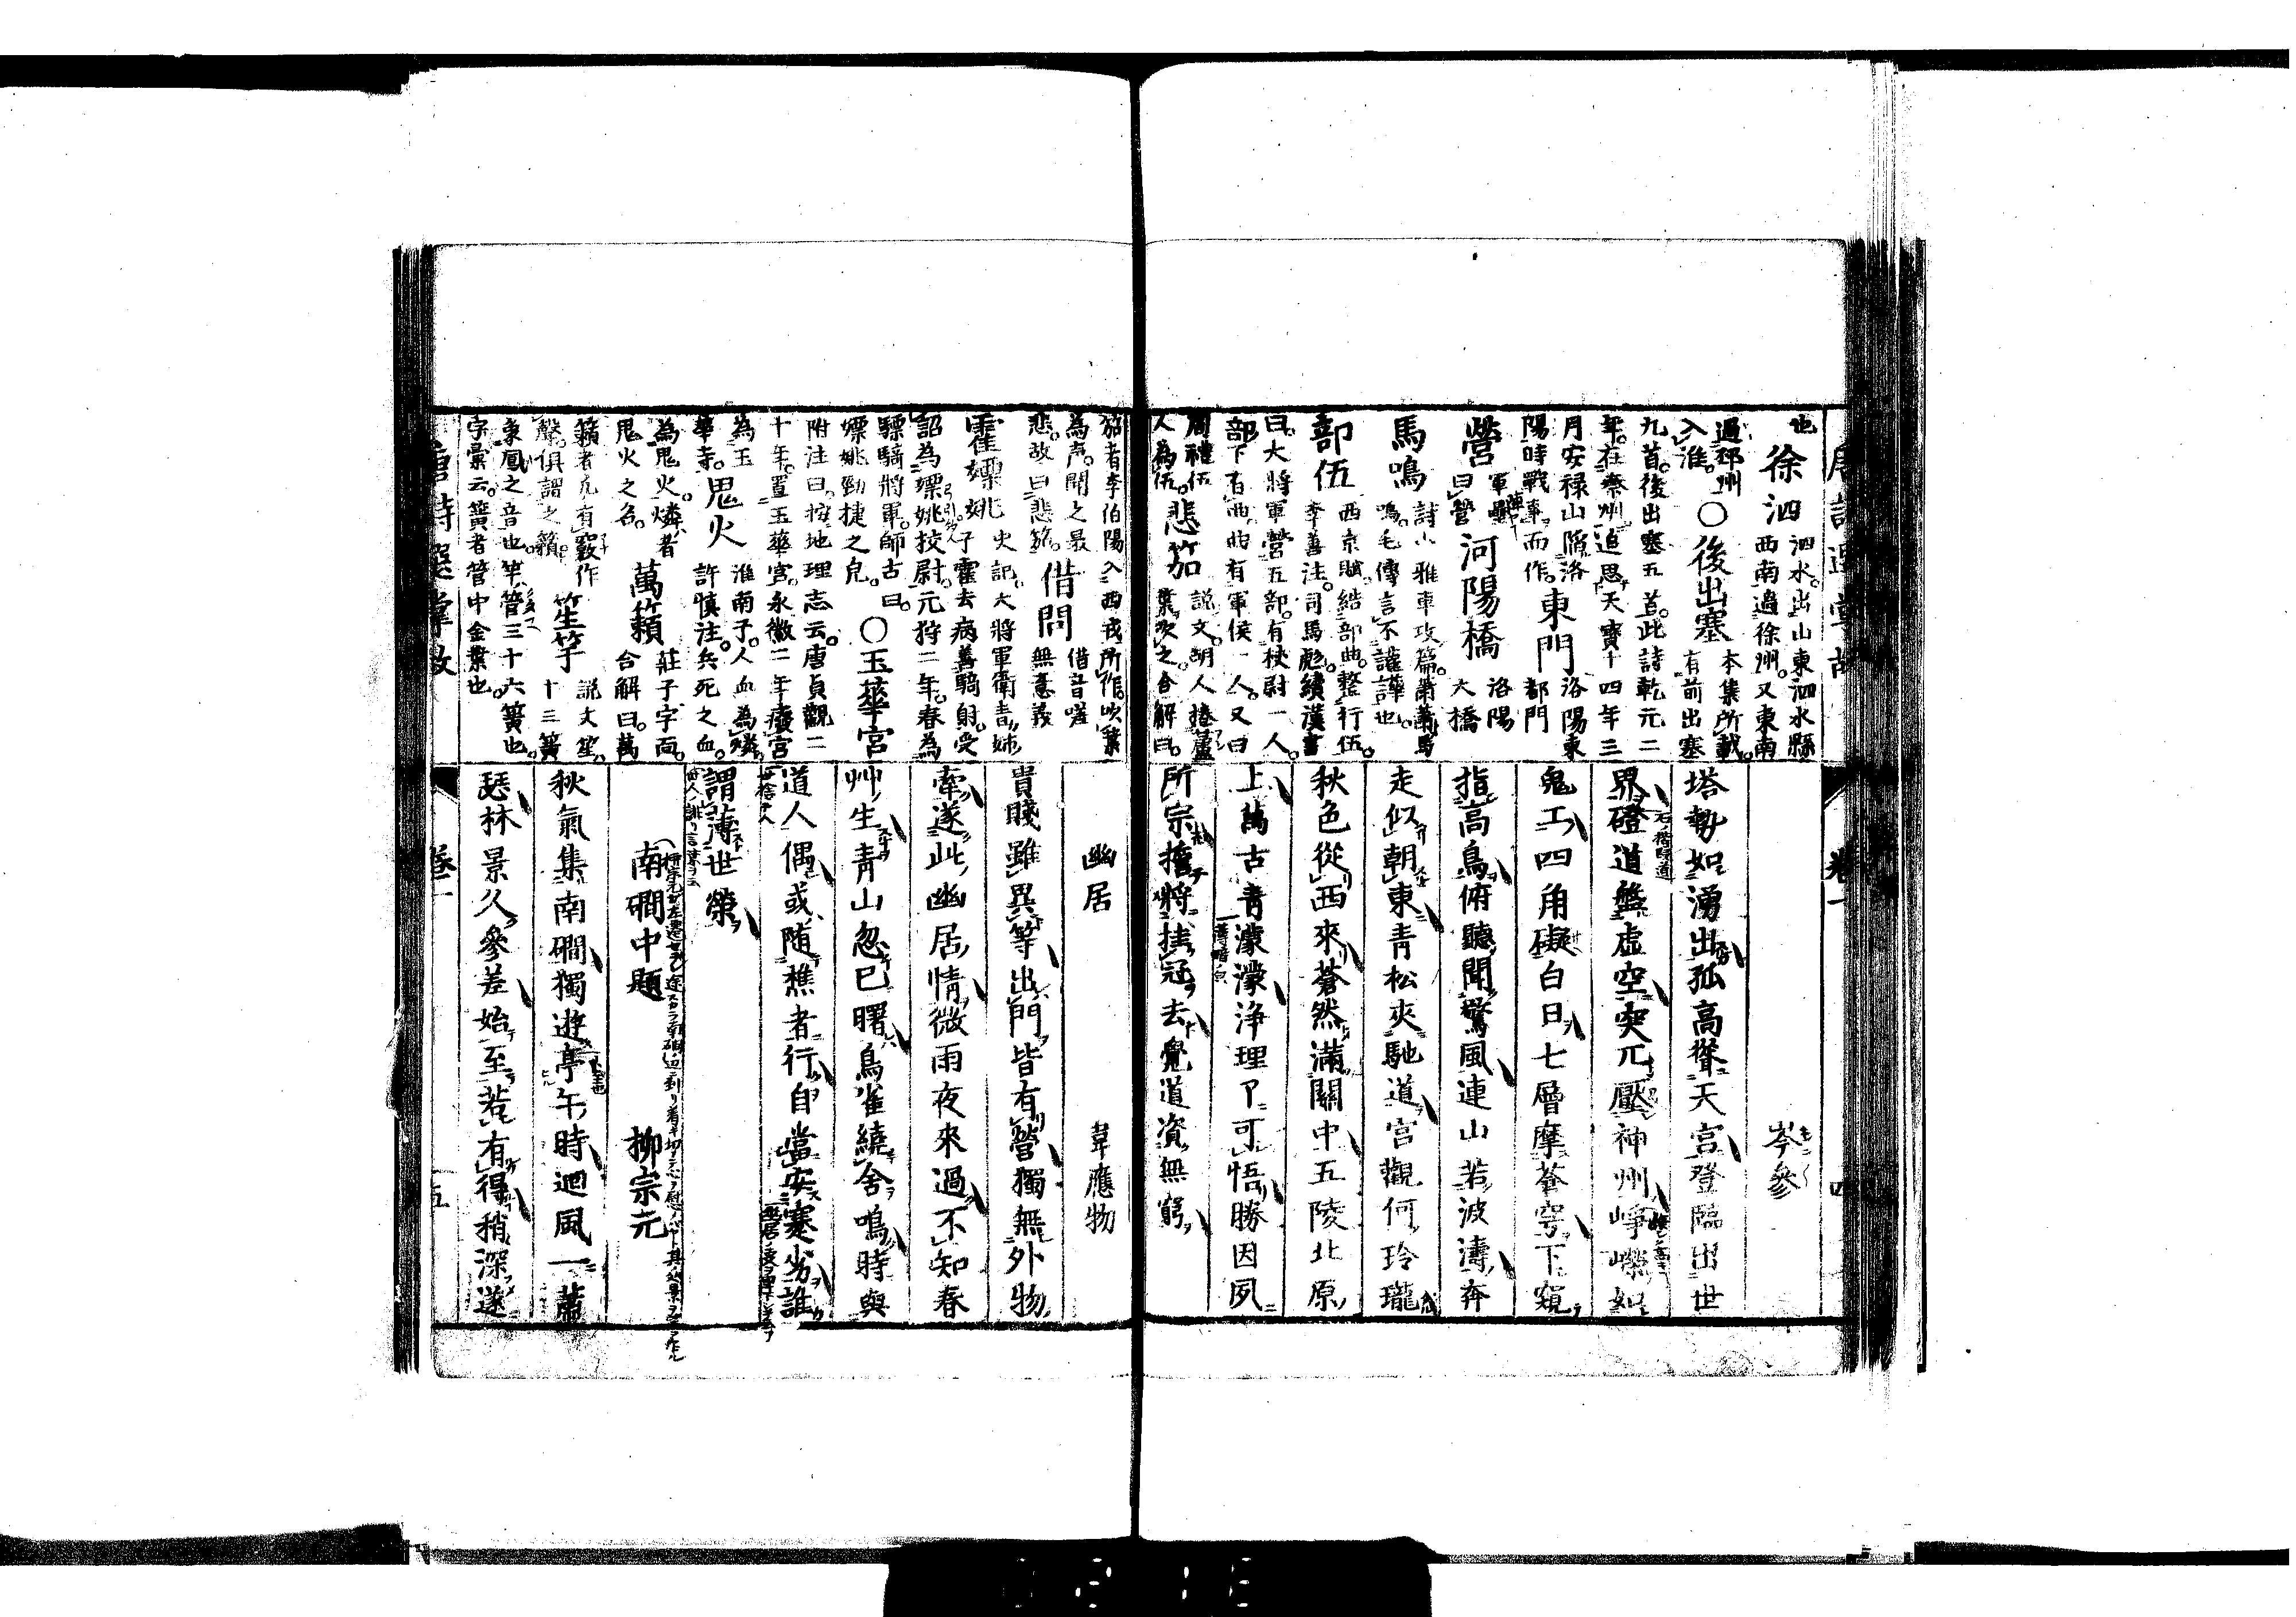 唐詩選掌故 卷一 四
也
徐泗
泗水。出山東泗水縣
西南過徐州。又東南
過邳州
入淮。
○後出塞
本集所載。
有前出塞
九首。後出塞五首。此詩乾元二
年。在秦州追思天寶十四年三
月安禄山陷洛
陽時戰事而作。
東門
洛陽東
都門
營
軍壘
曰營
河陽橋
洛陽
大橋
馬鳴
詩小雅車攻篇。蕭蕭馬
鳴。毛傳言不讙譁也。
部伍
西京賦。結部曲。整行伍。
李善注。司馬彪續漢書
曰。大將軍營五部。有校尉一人。
部下有曲。曲有軍侯一人。又曰
周禮伍
人為伍。
悲笳
説文。胡人捲蘆
葉吹之。合解曰。
塔勢如湧出孤高聳天宮登臨出世
岑參
界磴道盤虚空突兀壓神州崢嶸如
鬼工四角礙白日七層摩蒼穹下窺
指高鳥俯聽聞驚風連山若波濤奔
走似朝東青松夾馳道宮觀何玲瓏
秋色從西來蒼然滿關中五陵北原
上萬古青濛濛浄理了可悟勝因夙
所宗擔將挂冠去覺道資無窮
笳者李伯陽入西戎所作。吹葉
為声。聞之最
悲。故曰悲笳。
借問
借音嗟
無意義
霍嫖姚
史記。大將軍衛青姉
子霍去病善騎射。受
詔為嫖姚校尉。元狩二年。春為
驃騎將軍。師古曰。
嫖姚勁捷之皃。
○玉華宮
附注曰。按地理志云。唐貞觀二
十年。置玉華宮。永徽二年廢宮
為玉
華寺。
鬼火
淮南子。人血為燐。
許慎注。兵死之血。
為鬼火。燐者
鬼火之名。
萬籟
莊子字面。
合解曰。萬
籟者凡有竅作
聲。俱謂之籟
笙竽
説文笙。
十三簧
象鳳之音也。竿管三十六簧也。
字彙云。簧者管中金葉也。
幽居
韋應物
貴賤雖異等出門皆有營獨無外物
牽遂此幽居情微雨夜來過不知春
艸生青山忽已曙鳥雀繞舍鳴時與
道人偶或随樵者行自當安蹇劣誰
謂薄世榮
南磵中題
柳宗元
秋氣集南磵獨遊亭午時迴風一蕭
瑟林景久參差始至若有得稍深遂
唐詩選掌故 卷一 五